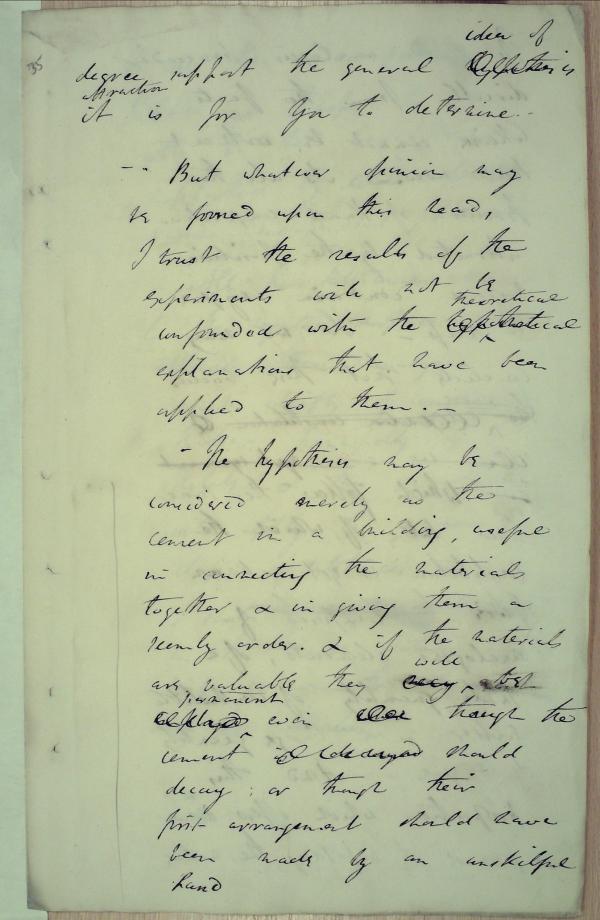 35
idea of
degree support the general
attraction
it is for you to determine. -
-- But whatever opinion may
be formed upon this head,
I trust the results of the
experiments will not be
theoretical
confounded with the hypothetical
explanations that have been
applied to them. -
- The hypothesis may be
considered merely as the
cement in a building, useful
in connecting the materials
together & in giving them a
seemly order. & if the materials
will
are valuable they may, be
permanent
even when though the
cement is decayed should
decay: or though their
first arrangement should have
been made by an unskilful
hand